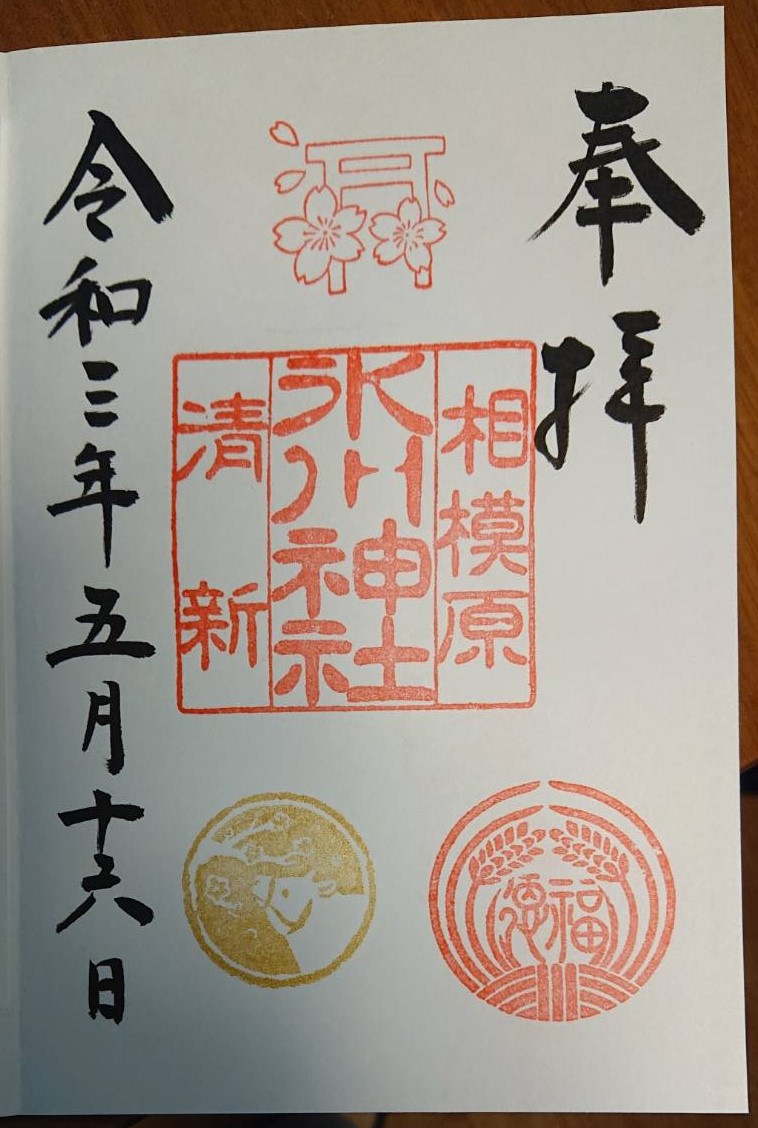 奉拝
相模原
氷川神社
清新
福徳
令和三年五月十六日